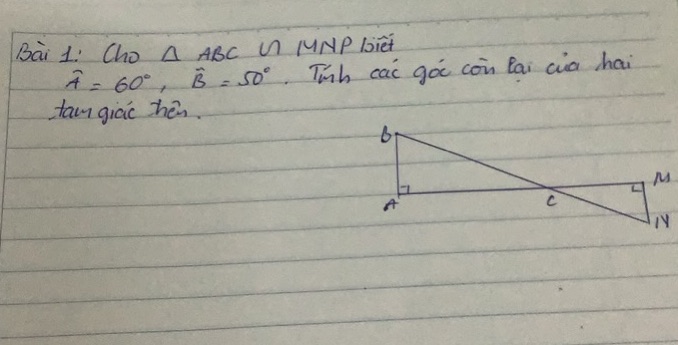 Bài 1: Cho Δ ABC ∽ MNP biết
Â = 60°, B̂ = 50°. Tính các góc còn lại của hai
tam giác trên.
B
A
C
M
N